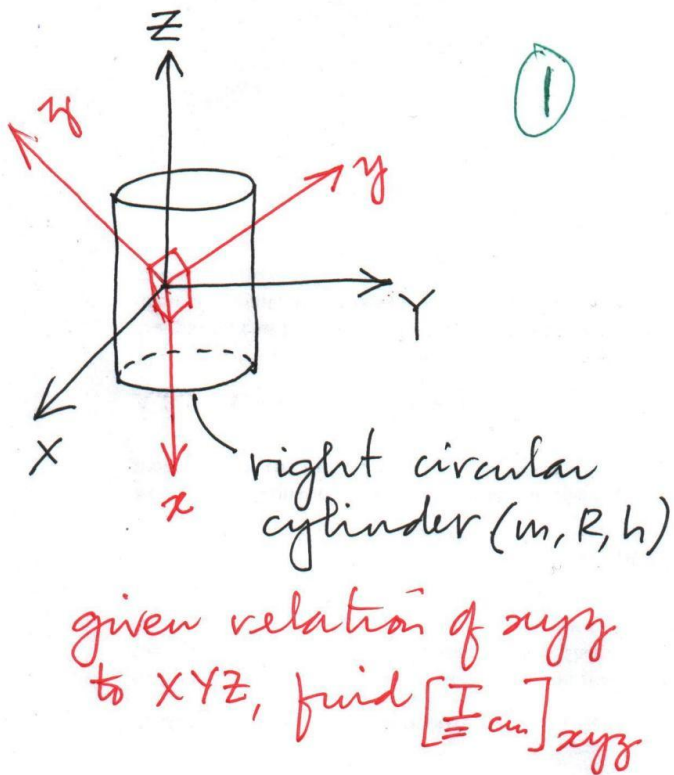 Z
①
z
y
Y
X
x
right circular
cylinder (m, R, h)
given relation of xyz
to XYZ, find [I cm] xyz